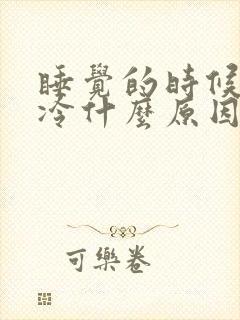 睡覺的時候
冷什麼原因
可樂卷